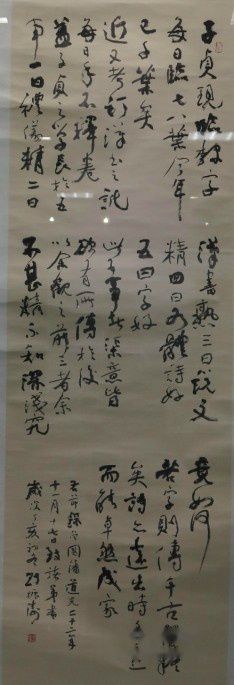 子貞現臨隸字
每日臨七八葉今年
已千葉矣
近又考訂漢書之訛
每日手不釋卷
蓋子貞之學長於五
事一曰禮儀精二曰
漢書熟三曰說文
精四曰各體詩好
五曰字好
此五事者渠意皆
欲有所傳於後
以余觀之前三者余
不甚精不知深淺究
竟如何
若字則傳千古
矣詩亦遠出時手之上
而能卓然成家
節錄國藩道光二十二年
十一月十七日致諸弟書
歲次丁亥初